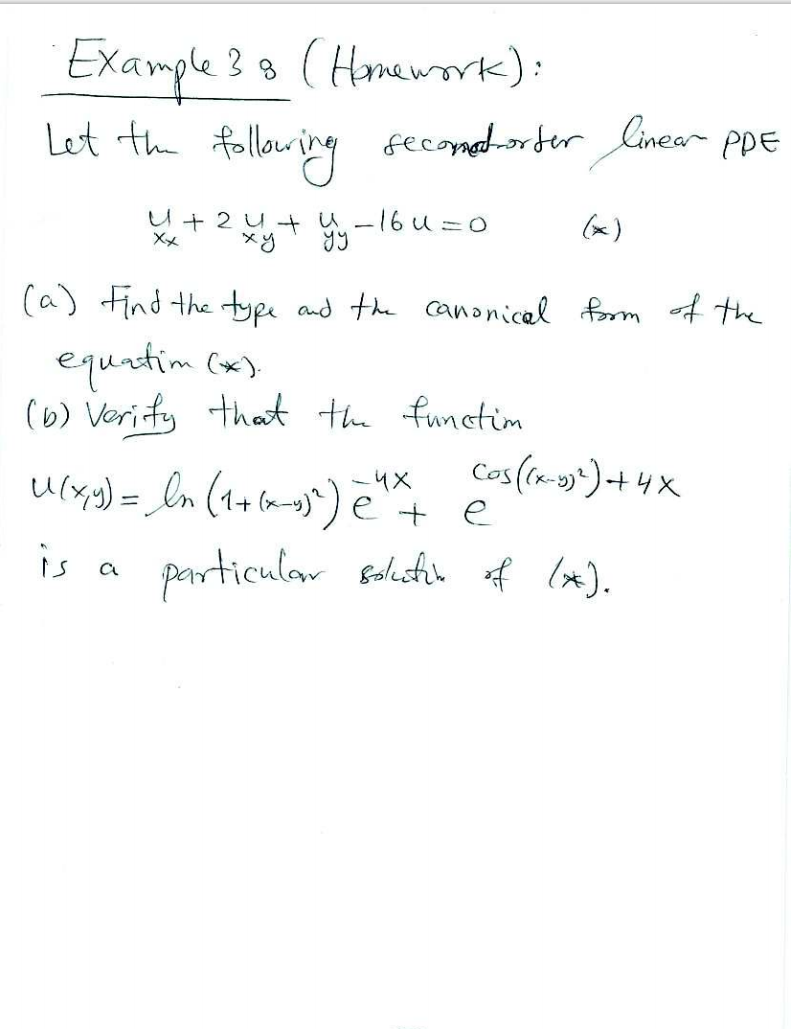 Example 3 : (Homework):
Let the following second-order linear PDE
u_xx + 2 u_xy + u_yy - 16 u = 0 (*)
(a) Find the type and the canonical form of the
equation (*).
(b) Verify that the function
u(x,y) = ln (1+(x-y)²) e^{-4x} + e^{cos((x-y)²)+4x}
is a particular solution of (*).